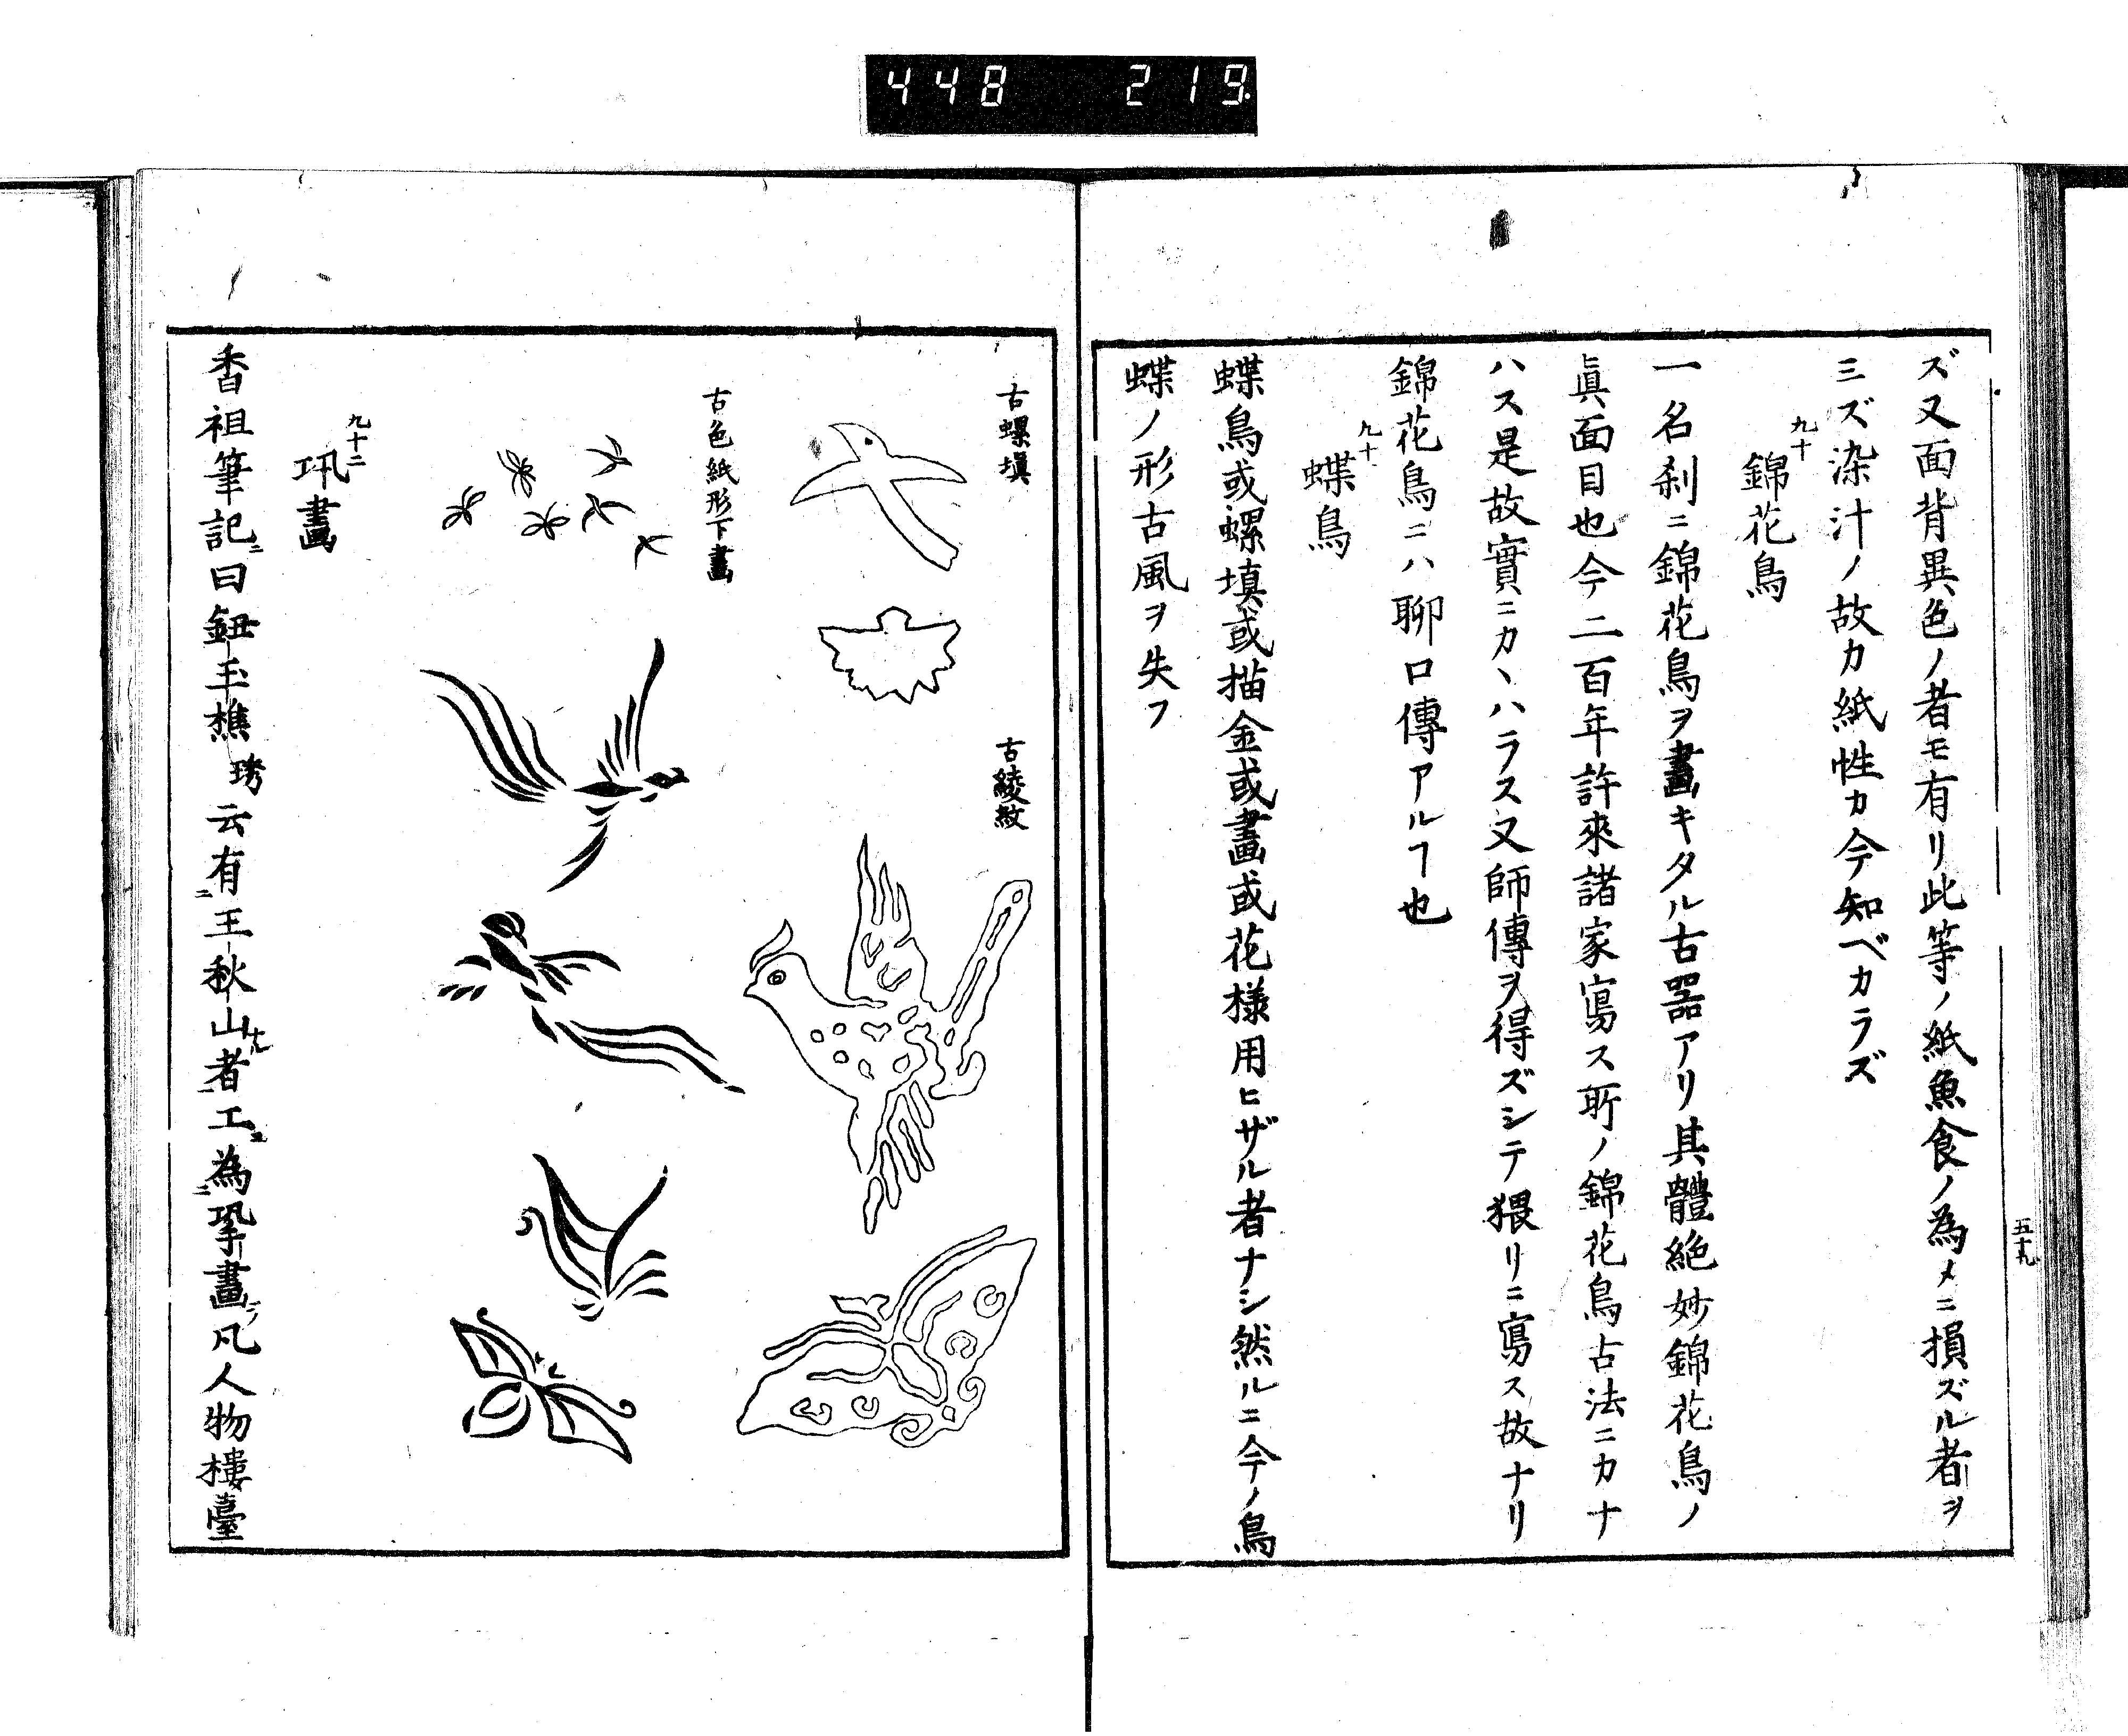 448 219
五十九
ズ又面背異色ノ者モ有リ此等ノ紙魚食ノ為メニ損ズル者ヲ
ミズ染汁ノ故カ紙性カ今知ベカラズ
九十
錦花鳥
一名刹ニ錦花鳥ヲ畫キタル古器アリ其體絶妙錦花鳥ノ
眞面目也今二百年許來諸家寫ス所ノ錦花鳥古法ニカナ
ハス是故實ニカヽハラス又師傳ヲ得ズシテ猥リニ寫ス故ナリ
錦花鳥ニハ聊口傳アルヿ也
九十一
蝶鳥
蝶鳥或螺填或描金或畫或花様用ヒザル者ナシ然ルニ今ノ鳥
蝶ノ形古風ヲ失フ
古螺填
古綾紋
古色紙形下畫
九十二
巩畫
香祖筆記ニ曰鈕玉樵琇云有ニ王秋山ナル者ニ工ニ為ニ鞏畫ヲ凡人物樓臺